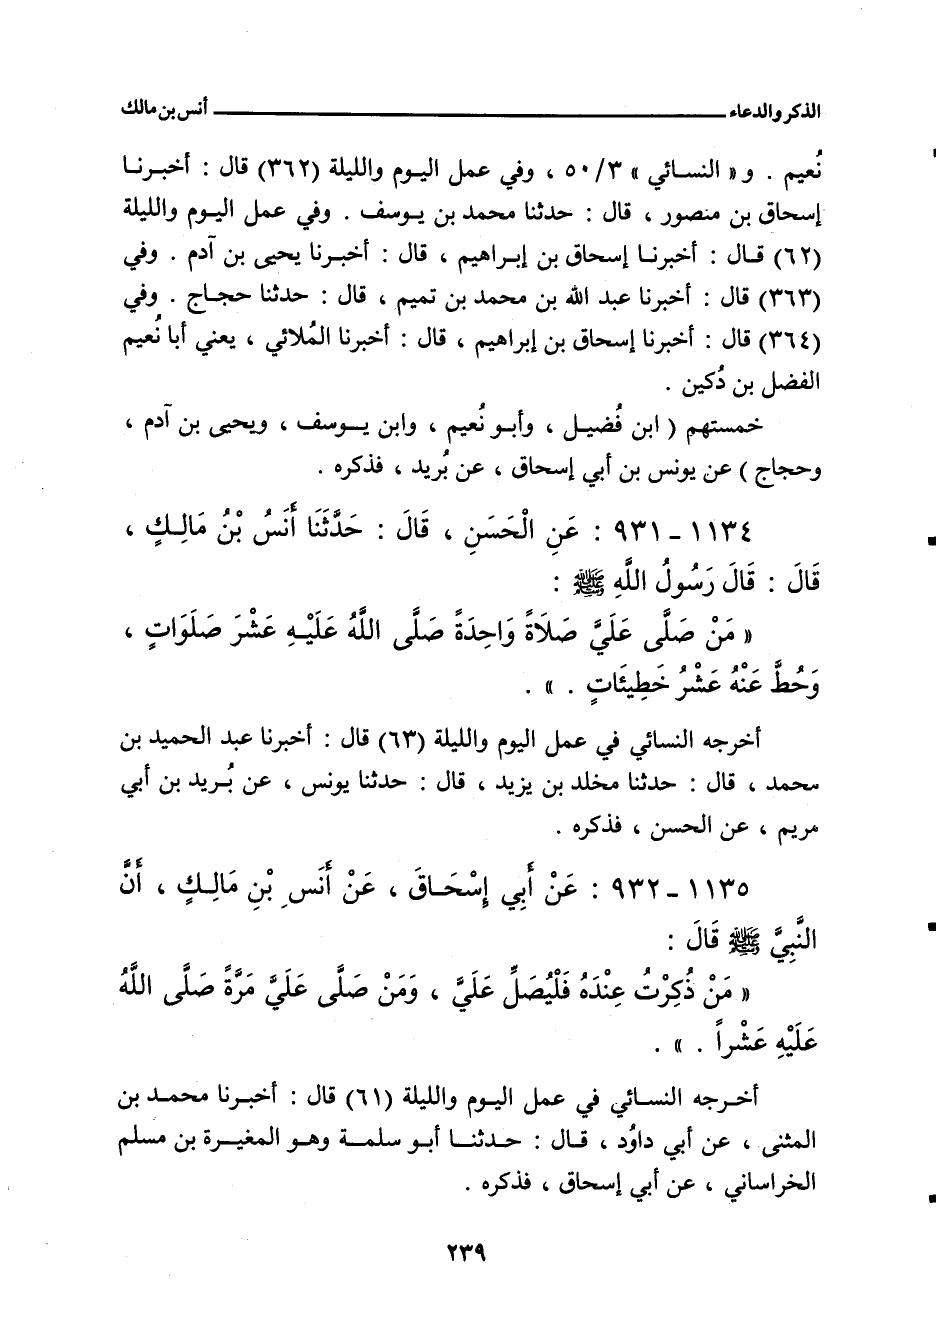 الذكر والدعاء ــــــــــ أنس بن مالك
نُعيم . و « النسائي » ٥٠/٣ ، وفي عمل اليوم والليلة (٣٦٢) قال : أخبرنا
إسحاق بن منصور ، قال : حدثنا محمد بن يوسف . وفي عمل اليوم والليلة
(٦٢) قال : أخبرنا إسحاق بن إبراهيم ، قال : أخبرنا يحيى بن آدم . وفي
(٣٦٣) قال : أخبرنا عبد الله بن محمد بن تميم ، قال : حدثنا حجاج . وفي
(٣٦٤) قال : أخبرنا إسحاق بن إبراهيم ، قال : أخبرنا المُلائي ، يعني أبا نُعيم
الفضل بن دُكين .
خمستهم ( ابن فُضيل ، وأبو نُعيم ، وابن يوسف ، ويحيى بن آدم ،
وحجاج ) عن يونس بن أبي إسحاق ، عن بُريد ، فذكره .
١١٣٤ - ٩٣١ : عَنِ الْحَسَنِ ، قَالَ : حَدَّثَنَا أَنَسُ بْنُ مَالِكٍ ،
قَالَ : قَالَ رَسُولُ اللَّهِ ﷺ :
« مَنْ صَلَّى عَلَيَّ صَلَاةً وَاحِدَةً صَلَّى اللَّهُ عَلَيْهِ عَشْرَ صَلَوَاتٍ ،
وَحُطَّ عَنْهُ عَشْرُ خَطِيئَاتٍ . » .
أخرجه النسائي في عمل اليوم والليلة (٦٣) قال : أخبرنا عبد الحميد بن
محمد ، قال : حدثنا مخلد بن يزيد ، قال : حدثنا يونس ، عن بُريد بن أبي
مريم ، عن الحسن ، فذكره .
١١٣٥ - ٩٣٢ : عَنْ أَبِي إِسْحَاقَ ، عَنْ أَنَسِ بْنِ مَالِكٍ ، أَنَّ
النَّبِيَّ ﷺ قَالَ :
« مَنْ ذُكِرْتُ عِنْدَهُ فَلْيُصَلِّ عَلَيَّ ، وَمَنْ صَلَّى عَلَيَّ مَرَّةً صَلَّى اللَّهُ
عَلَيْهِ عَشْراً . » .
أخرجه النسائي في عمل اليوم والليلة (٦١) قال : أخبرنا محمد بن
المثنى ، عن أبي داوُد ، قال : حدثنا أبو سلمة وهو المغيرة بن مسلم
الخراساني ، عن أبي إسحاق ، فذكره .
٢٣٩